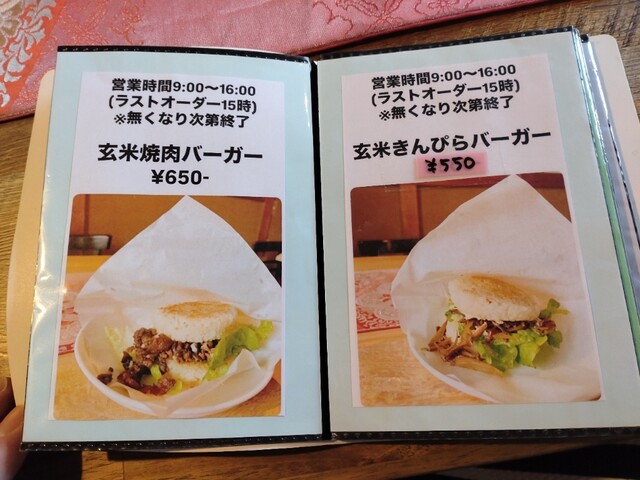 営業時間9:00〜16:00
(ラストオーダー15時)
※無くなり次第終了
玄米焼肉バーガー
¥650-
営業時間9:00〜16:00
(ラストオーダー15時)
※無くなり次第終了
玄米きんぴらバーガー
¥550